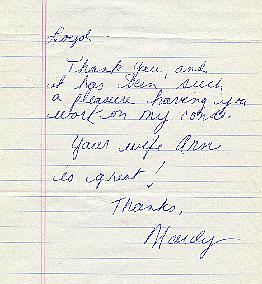 Loyd -
Thank you, and
it has been such
a pleasure having you
work on my condo.
Your wife Ann
is great!
Thanks,
Mandy